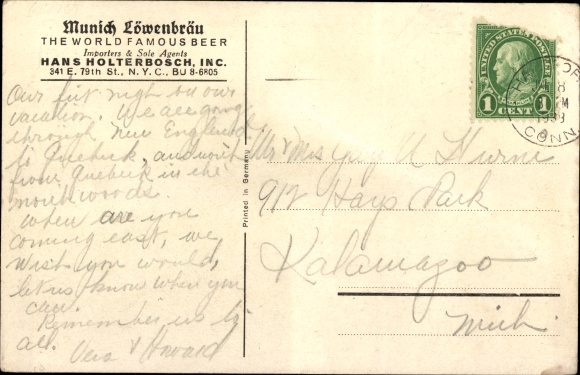 Munich Löwenbräu
THE WORLD FAMOUS BEER
Importers & Sole Agents
HANS HOLTERBOSCH, INC.
341 E. 79th St., N. Y. C., BU 8-6805
Our first night on our
vacation. We are going
through New England
to Quebeck, and north
from Quebeck in the
north woods.
When are you
coming east, we
wish you would,
let us know when you
can.
Remember us to
all.
Vera & Howard
Printed in Germany
UNITED STATES POSTAGE
1 CENT 1
CONN.
Mr & Mrs
912 Hays Park
Kalamazoo
Mich.